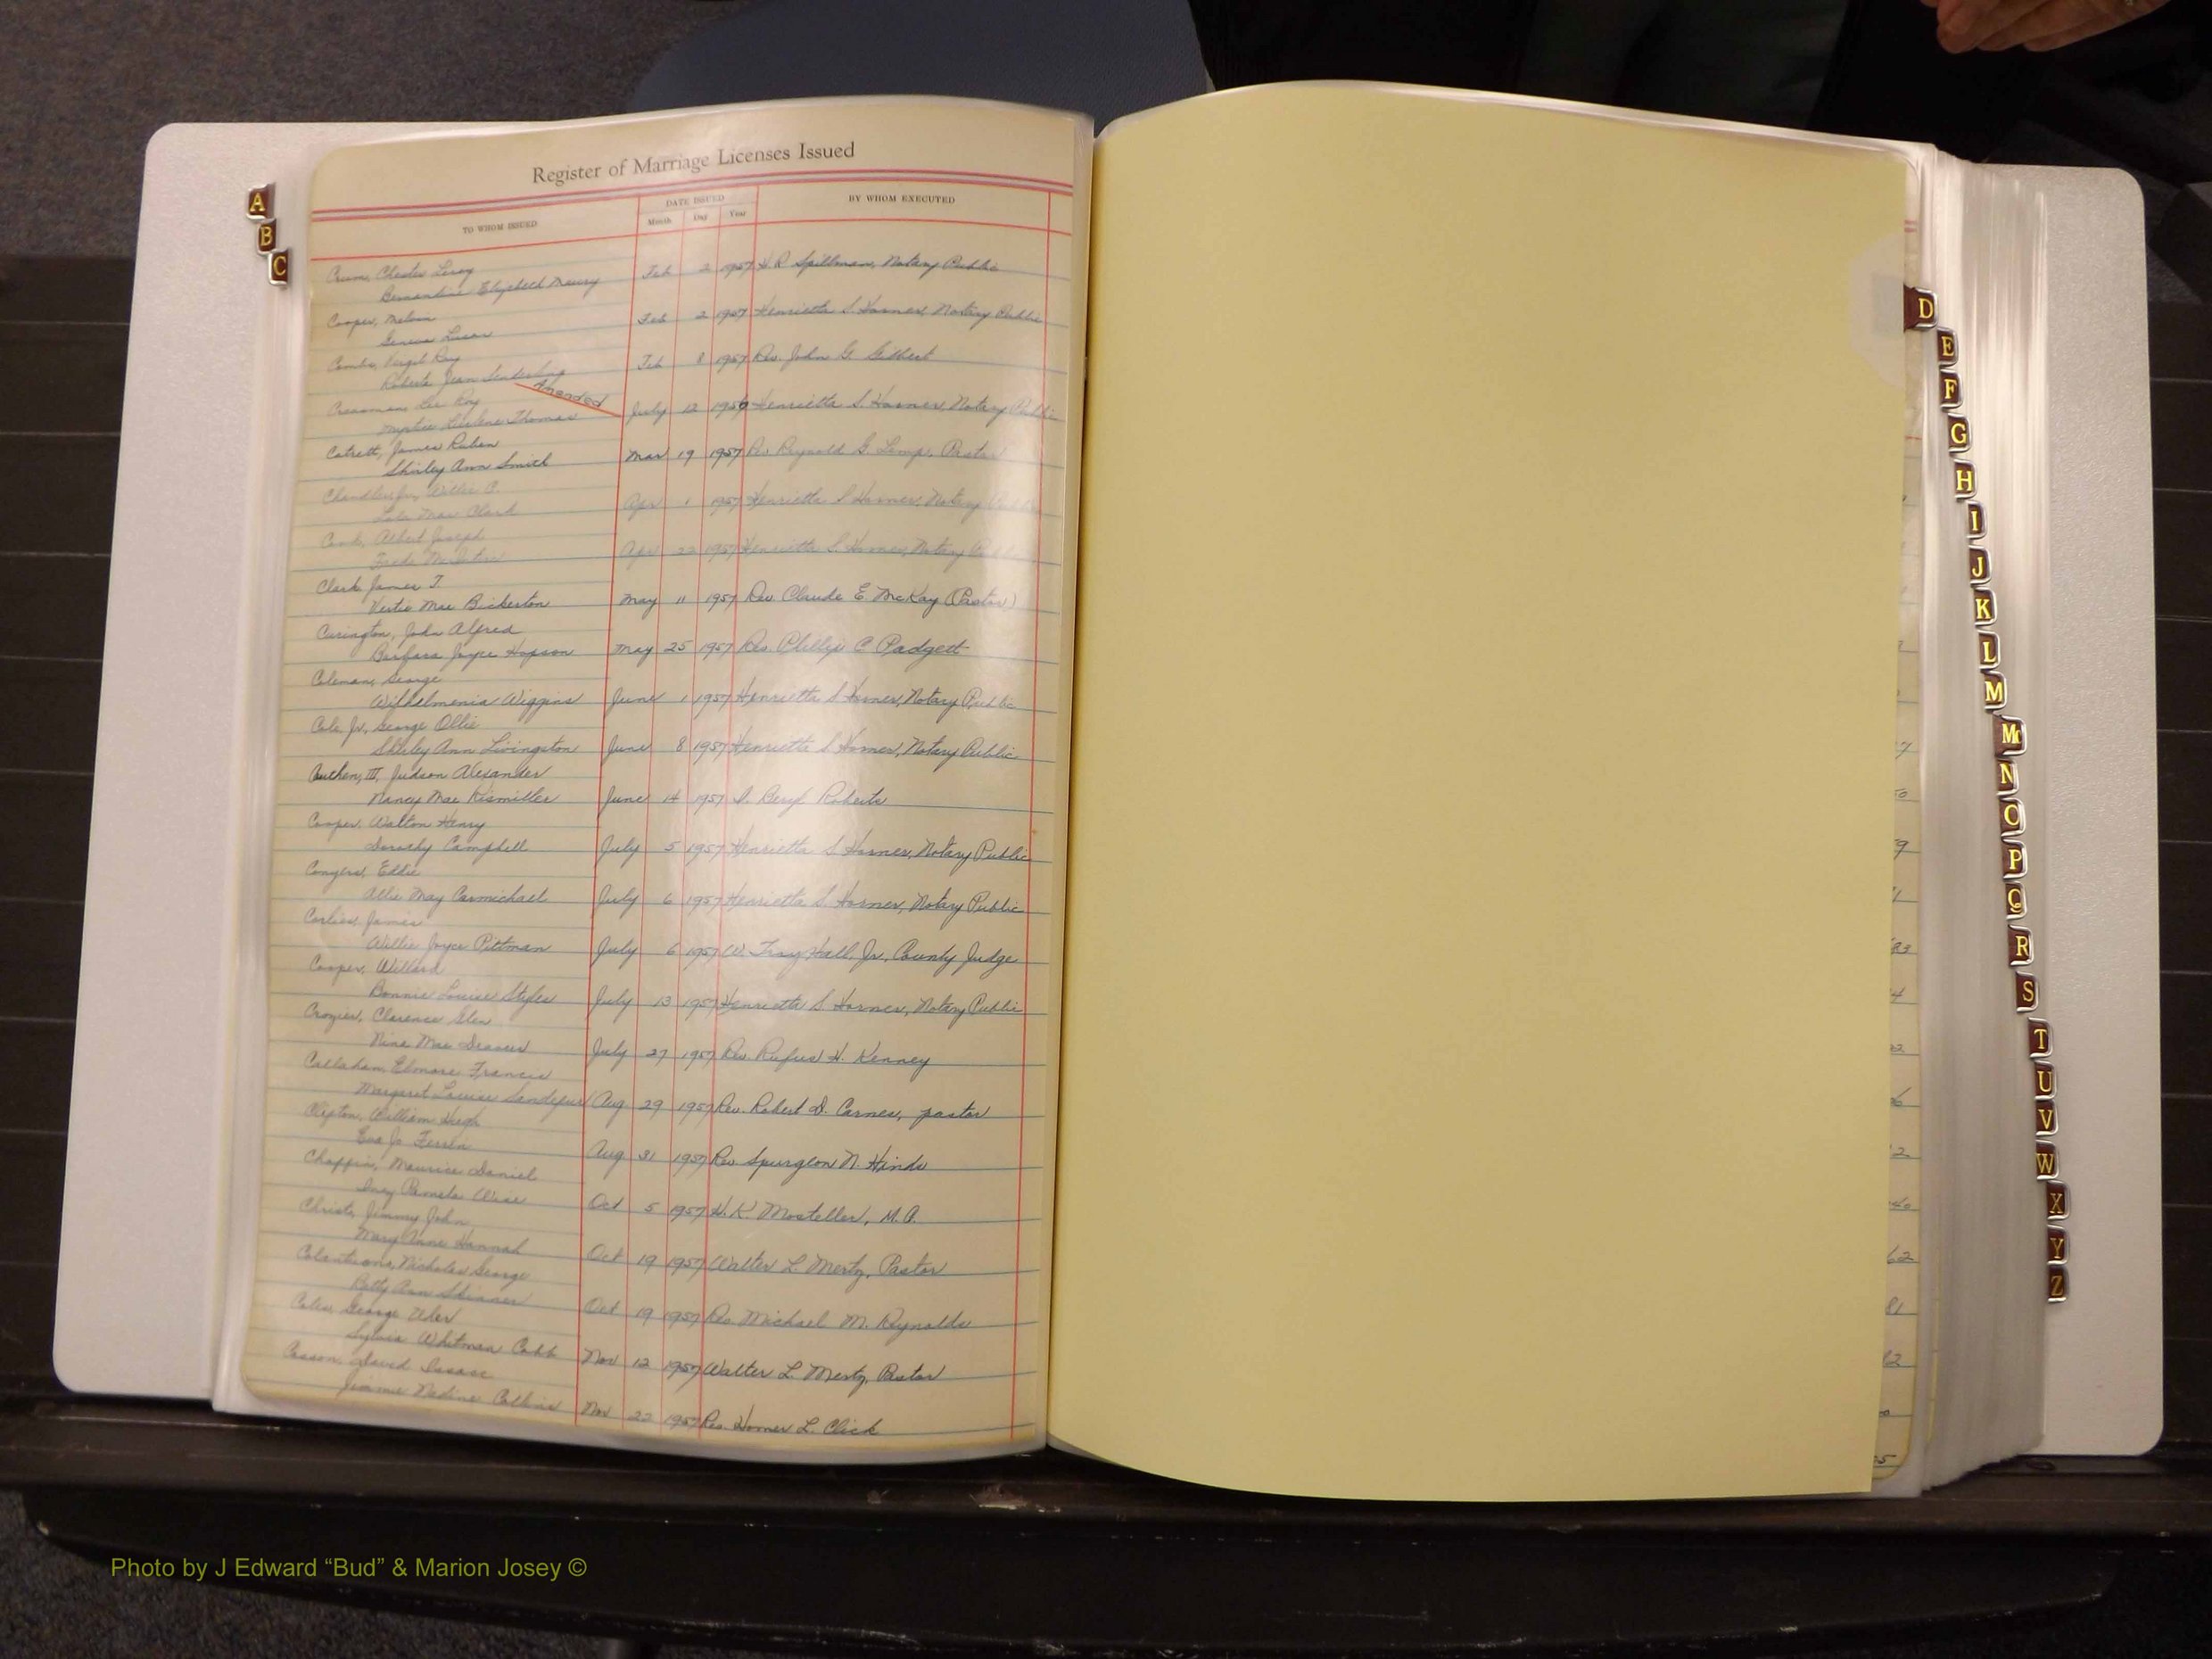 Register of Marriage Licenses Issued
TO WHOM ISSUED
DATE ISSUED
Month Day Year
BY WHOM EXECUTED
Crum, Chester Leroy
Bernandine Elizabeth Maury Feb 2 1957 H. R. Spillman, Notary Public
Cooper, Melvin
Geneva Lucas Feb 2 1957 Henrietta S. Horner, Notary Public
Combs, Virgil Ray
Roberta Jean Feb 8 1957 Rev. John G. Gilbert
Amended
Cressman, Lee Roy
Thomas July 12 1956 Henrietta S. Horner, Notary Public
Catrett, James Ruben
Shirley Ann Smith Mar 19 1957 Rev. Reynold G. Lemp, Pastor
Chandler Jr., Willie C.
Lola Mae Clark Apr 1 1957 Henrietta S Horner, Notary Public
Cook, Albert Joseph
Apr 22 1957 Henrietta S. Horner, Notary Public
Clark James T
Vertie Mae Bickerton May 11 1957 Rev. Claude E. McKay (Pastor)
Curington, John Alfred
Barbara Joyce Hopson May 25 1957 Rev. Phillip C Padgett
Coleman, George
Wilhelmenia Wiggins June 1 1957 Henrietta S Horner, Notary Public
Cole Jr., George Ollie
Shirley Ann Livingston June 8 1957 Henrietta S Horner, Notary Public
III, Judson Alexander
Nancy Mae Rismiller June 14 1957 D. Beryl Roberts
Cooper, Walton Henry
Dorothy Campbell July 5 1957 Henrietta S Horner, Notary Public
Conyers, Eddie
Allie May Carmichael July 6 1957 Henrietta S. Horner, Notary Public
Corlies, James
Willie Joyce Pittman July 6 1957 W. Troy Hall, Jr., County Judge
Cooper, Willard
Bonnie Louise Styles July 13 1957 Henrietta S Horner, Notary Public
Crozier, Clarence Glen
Nina Mae July 27 1957 Rev. Rufus H. Kenney
Callahan, Elmore Francis
Margaret Louise Sandefur Aug 29 1957 Rev. Robert D. Carnes, pastor
Clifton, William Hugh
Eva Jo Aug 31 1957 Rev. Spurgeon N. Hinds
Chappin, Maurice Daniel
Pamela Wise Oct 5 1957 H. K. Mosteller, M.A.
Christ, Jimmy John
Mary Anne Hannah Oct 19 1957 Walter L. Mertz, Pastor
Nicholas George
Betty Ann Skinner Oct 19 1957 Rev. Michael M. Reynolds
George
Sylvia Whitman Cobb Nov 12 1957 Walter L. Mertz, Pastor
David Isaac
Jimmie Nadine Collins Nov 22 1957 Rev. Homer L. Click
A
B
C
D
E
F
G
H
I
J
K
L
M
Mc
N
O
P
Q
R
S
T
U
V
W
X
Y
Z
Photo by J Edward “Bud” & Marion Josey ©